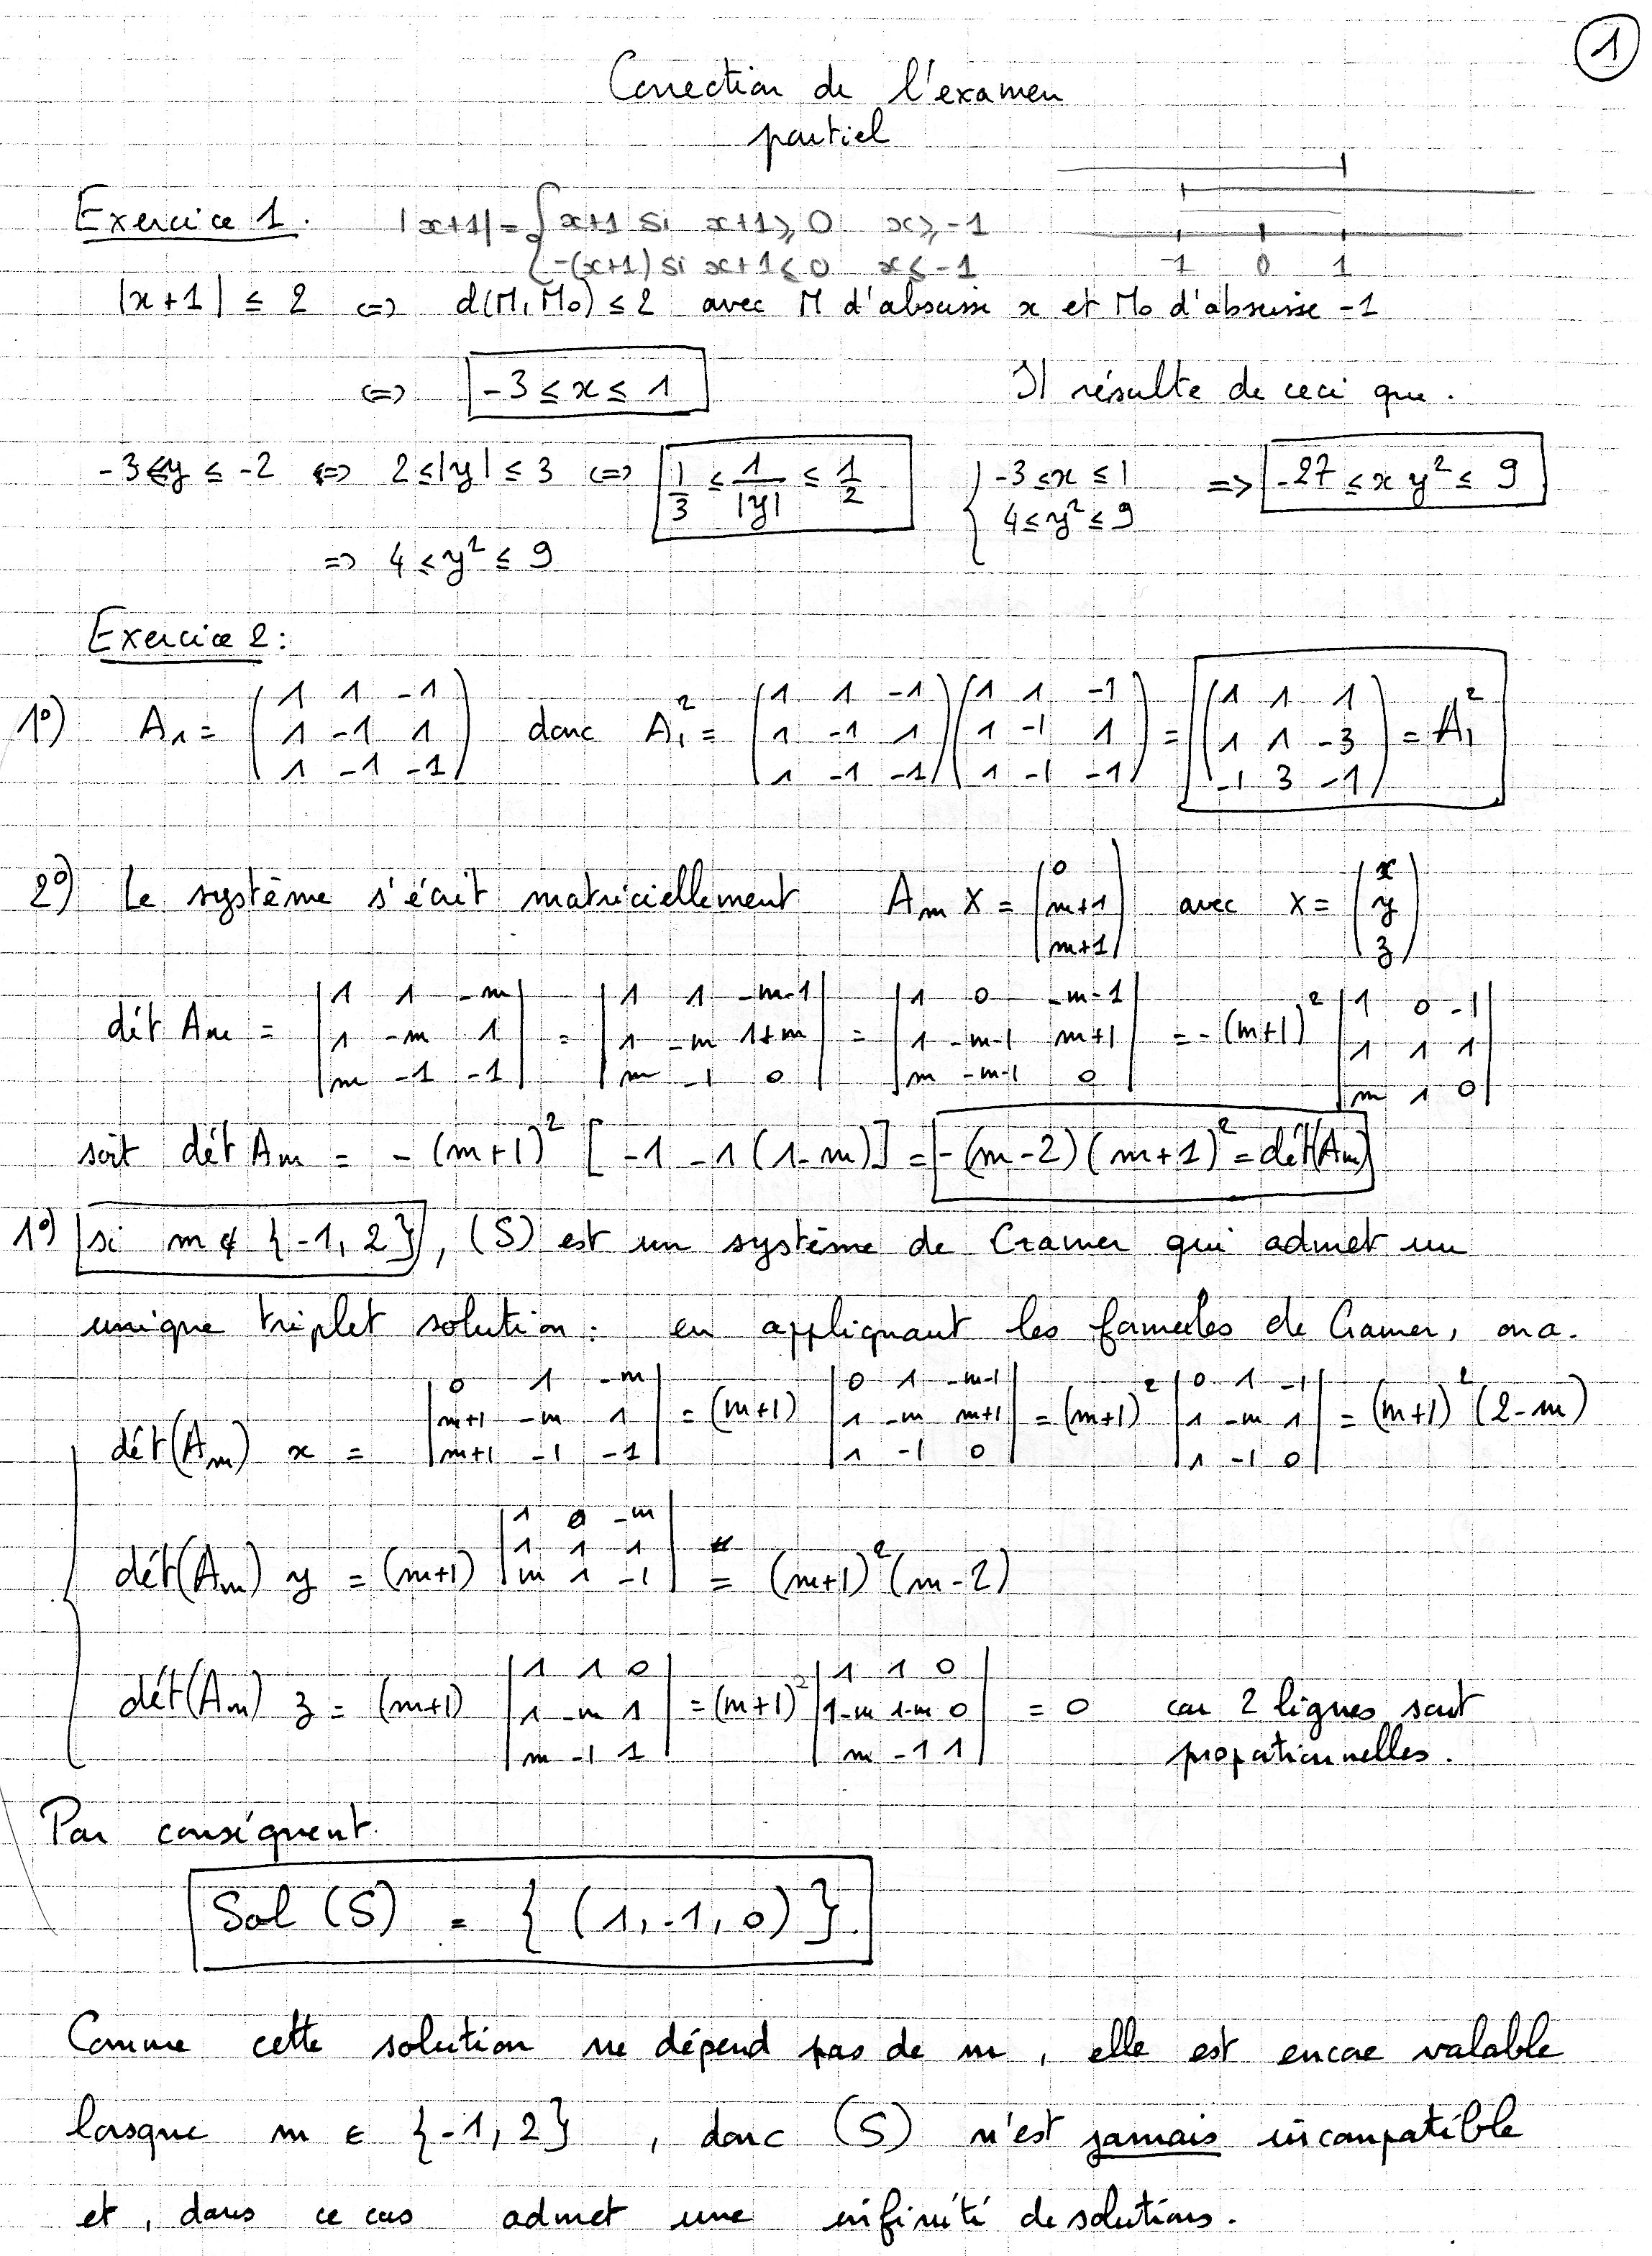 1
Correction de l'examen
partiel
Exercice 1. |x+1| = { x+1 si x+1 ≥ 0 x ≥ -1
-(x+1) si x+1 ≤ 0 x ≤ -1 -1 0 1
|x+1| ≤ 2 <=> d(M, M₀) ≤ 2 avec M d'abscisse x et M₀ d'abscisse -1
<=> -3 ≤ x ≤ 1 Il résulte de ceci que.
-3 ≤ y ≤ -2 <=> 2 ≤ |y| ≤ 3 <=> 1/3 ≤ 1/|y| ≤ 1/2 { -3 ≤ x ≤ 1 => -27 ≤ x y² ≤ 9
=> 4 ≤ y² ≤ 9 4 ≤ y² ≤ 9
Exercice 2:
1°) A₁ = (1 1 -1 ; 1 -1 1 ; 1 -1 -1) donc A₁² = (1 1 -1 ; 1 -1 1 ; 1 -1 -1)(1 1 -1 ; 1 -1 1 ; 1 -1 -1) = (1 1 1 ; 1 1 -3 ; -1 3 -1) = A₁²
2°) Le système s'écrit matriciellement Am X = (0 ; m+1 ; m+1) avec X = (x ; y ; z)
dét Am = |1 1 -m ; 1 -m 1 ; m -1 -1| = |1 1 -m-1 ; 1 -m 1+m ; m -1 0| = |1 0 -m-1 ; 1 -m-1 m+1 ; m -m-1 0| = -(m+1)² |1 0 -1 ; 1 1 1 ; m 1 0|
soit dét Am = -(m+1)² [-1 -1(1-m)] = -(m-2)(m+1)² = dét(Am)
1°) si m ∉ {-1, 2}, (S) est un système de Cramer qui admet un
unique triplet solution : en appliquant les formules de Cramer, on a.
dét(Am) x = |0 1 -m ; m+1 -m 1 ; m+1 -1 -1| = (m+1) |0 1 -m-1 ; 1 -m m+1 ; 1 -1 0| = (m+1)² |0 1 -1 ; 1 -m 1 ; 1 -1 0| = (m+1)² (2-m)
dét(Am) y = (m+1) |1 0 -m ; 1 1 1 ; m 1 -1| = (m+1)² (m-2)
dét(Am) z = (m+1) |1 1 0 ; 1 -m 1 ; m -1 1| = (m+1)² |1 1 0 ; 1-m 1-m 0 ; m -1 1| = 0 car 2 lignes sont
proportionnelles.
Par conséquent.
Sol (S) = { (1, -1, 0) }
Comme cette solution ne dépend pas de m, elle est encore valable
lorsque m ∈ {-1, 2}, donc (S) n'est jamais incompatible
et, dans ce cas admet une infinité de solutions.